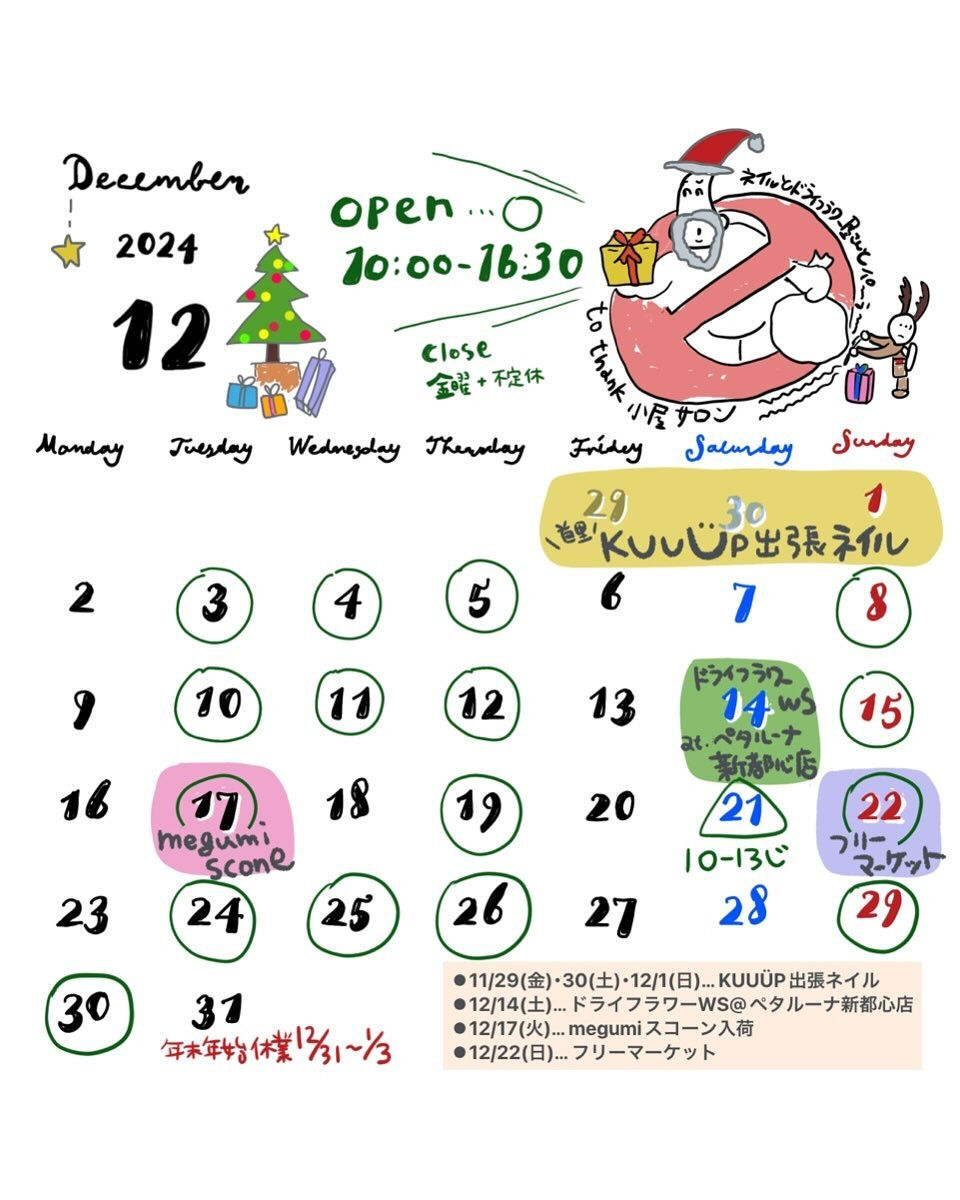 December
2024
12
open...○
10:00-16:30
close
金曜+不定休
to thank 小屋サロン
Monday Tuesday Wednesday Thursday Friday Saturday Sunday
29 30 1
\首里/ KUUÜP出張ネイル
2 3 4 5 6 7 8
9 10 11 12 13 14 15
ドライフラワー
WS
at.ペタルーナ
新都心店
16 17 18 19 20 21 22
megumi
scone
10-13じ
フリー
マーケット
23 24 25 26 27 28 29
30 31
年末年始休業12/31~1/3
●11/29(金)・30(土)・12/1(日)... KUUÜP出張ネイル
●12/14(土)... ドライフラワーWS@ペタルーナ新都心店
●12/17(火)... megumiスコーン入荷
●12/22(日)... フリーマーケット